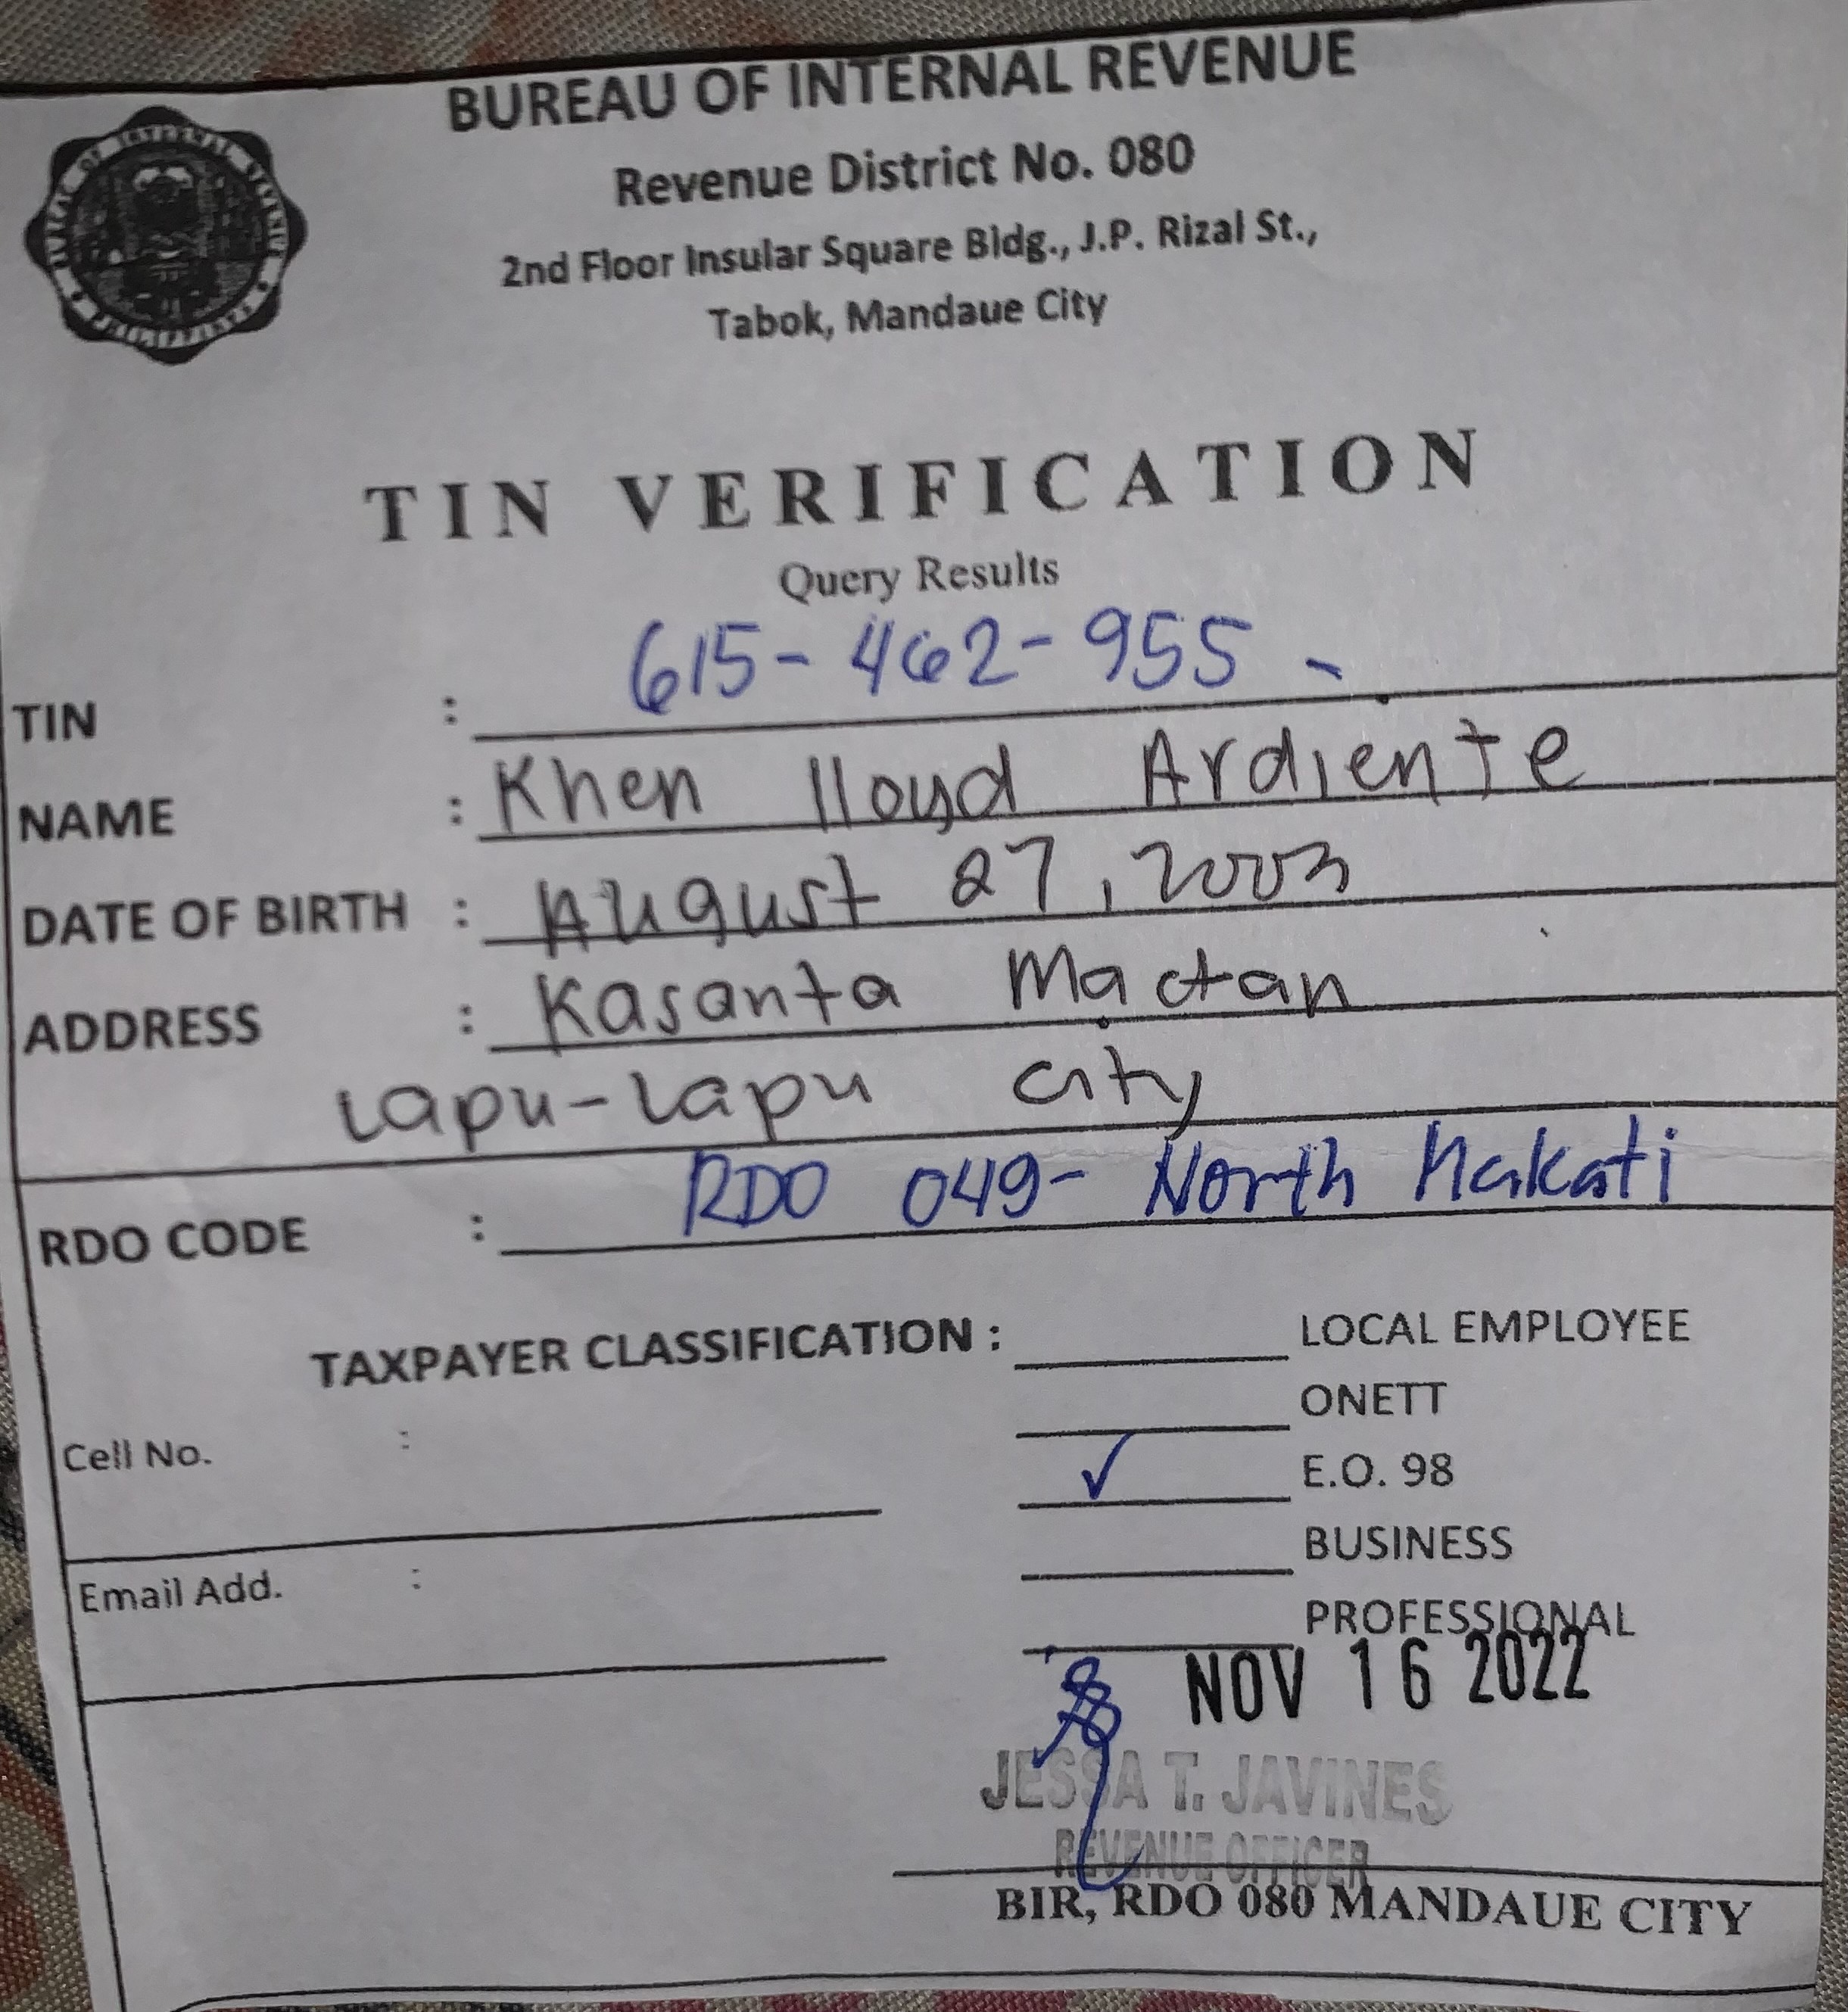 BUREAU OF INTERNAL REVENUE
Revenue District No. 080
2nd Floor Insular Square Bldg., J.P. Rizal St.,
Tabok, Mandaue City
BUREAU OF INTERNAL REVENUE
PHILIPPINES
TIN VERIFICATION
Query Results
TIN : 615-462-955 -
NAME : Khen lloyd Ardiente
DATE OF BIRTH : August 27, 2003
ADDRESS : Kasanta Mactan
Lapu-Lapu city
RDO CODE : RDO 049- North Makati
TAXPAYER CLASSIFICATION : LOCAL EMPLOYEE
ONETT
Cell No. :
✓ E.O. 98
BUSINESS
Email Add. :
PROFESSIONAL
NOV 16 2022
JESSA T. JAVINES
REVENUE OFFICER
BIR, RDO 080 MANDAUE CITY